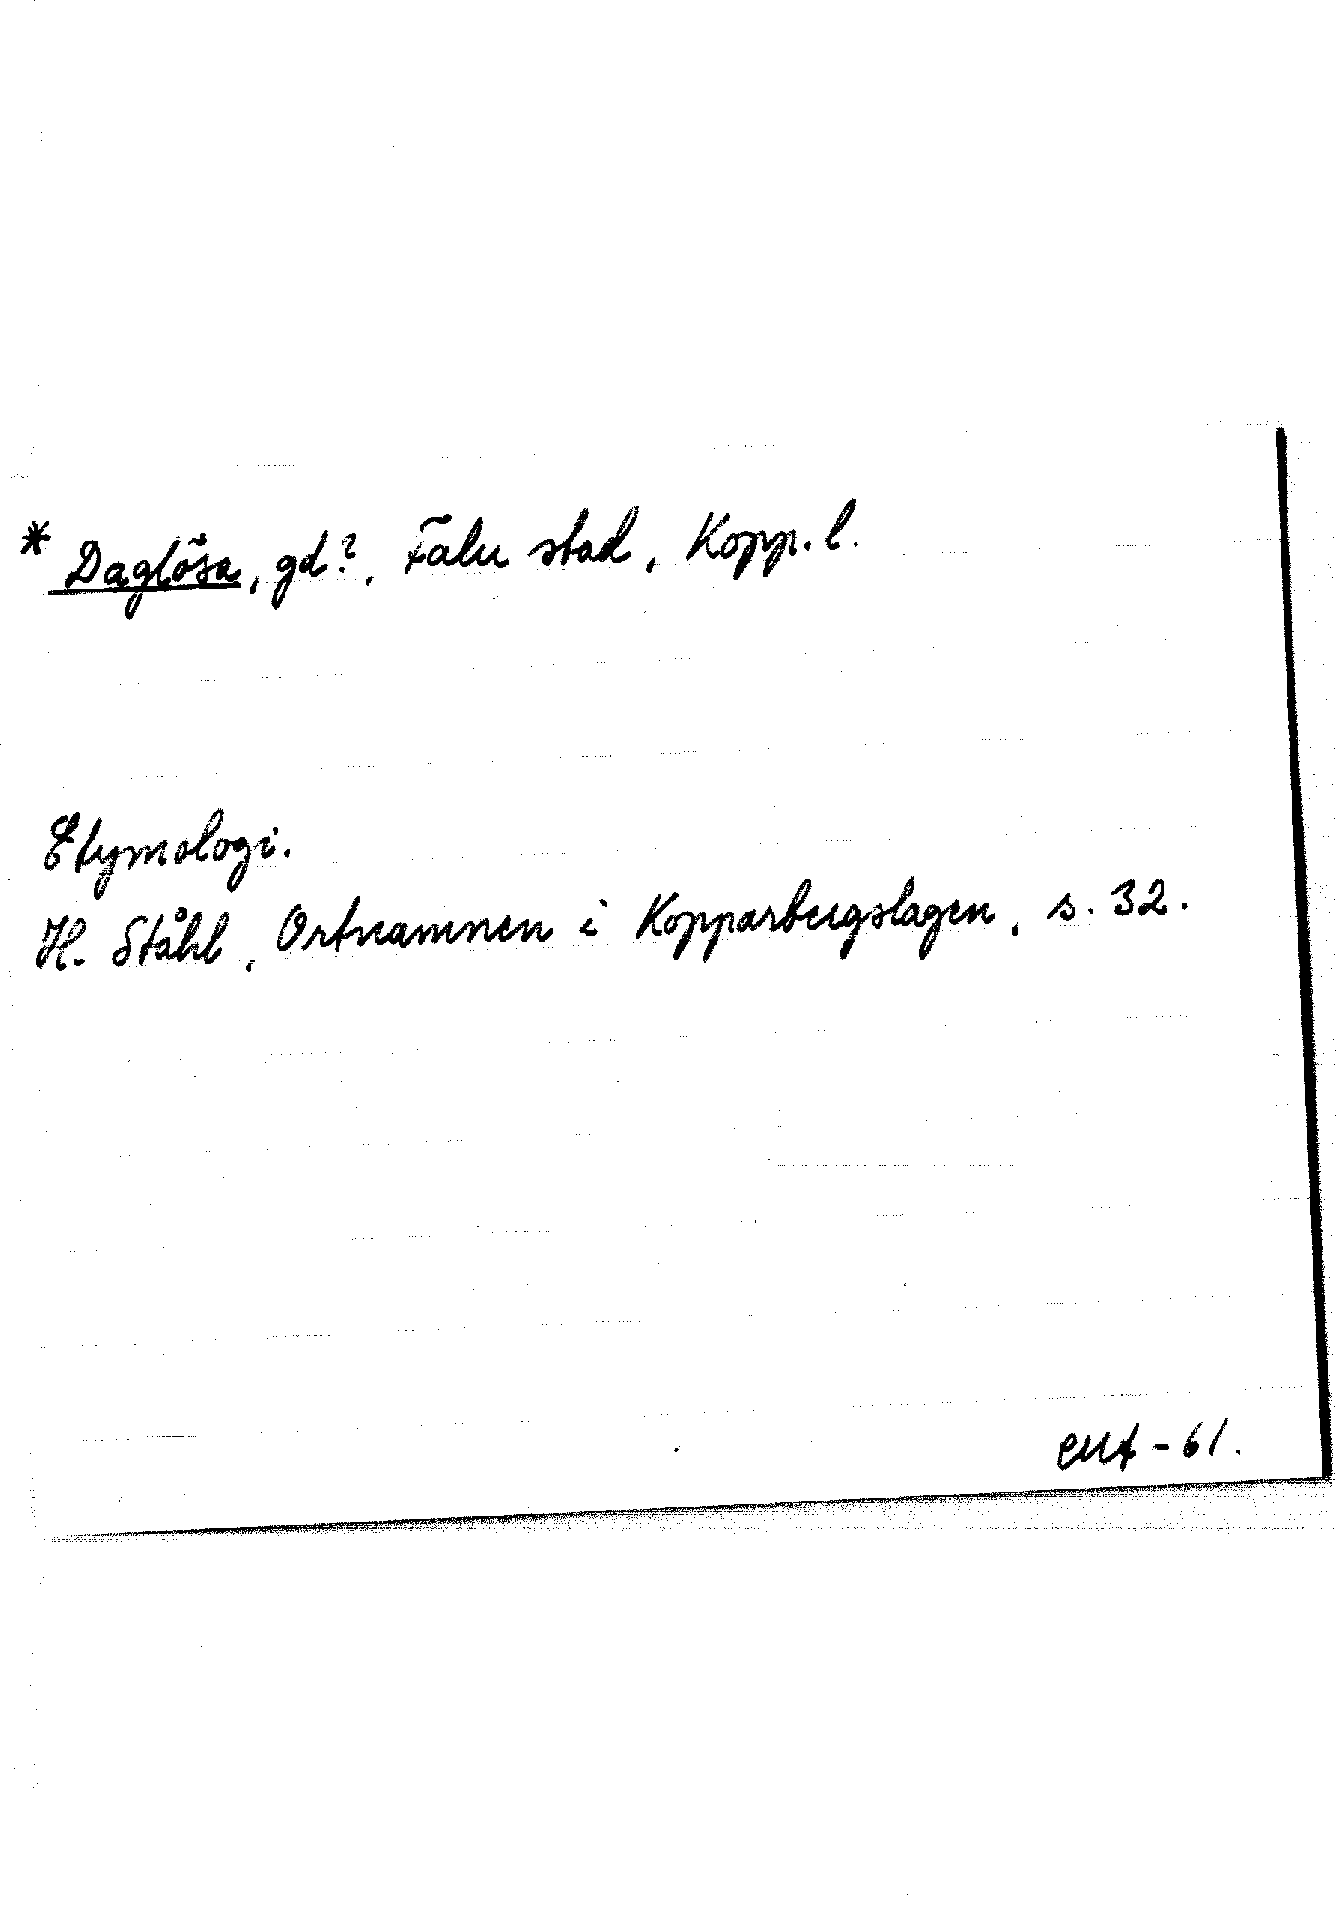 * Daglösa, gd?, Falu stad, Kopp. l.
Etymologi.
H. Ståhl, Ortnamnen i Kopparbergslagen, s. 32.
-61.